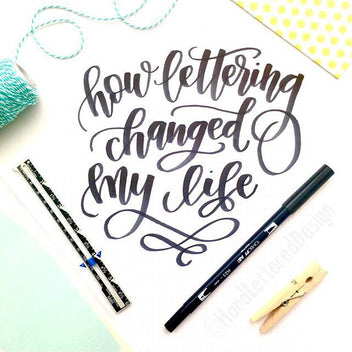 how lettering
changed
my life
@HandLetteredDesign